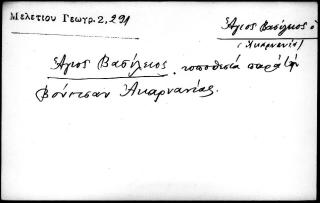 Μελετίου Γεωγρ. 2, 291
Ἅγιος Βασίλειος ὁ
(Ἀκαρνανία)
Ἅγιος Βασίλειος, τοποθεσία παρὰ τὴν
Βόνιτσαν Ἀκαρνανίας.